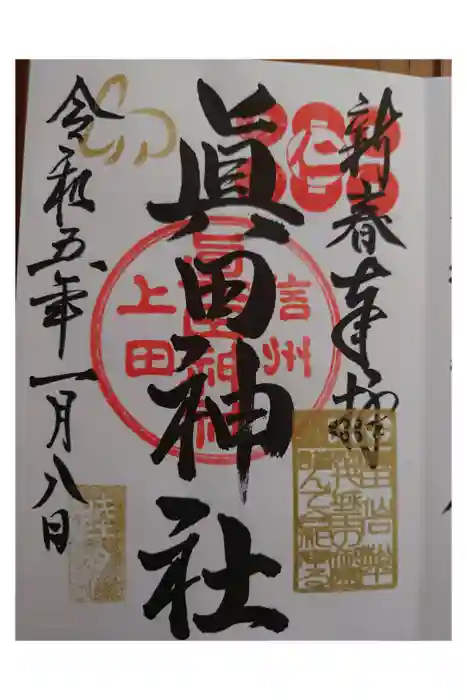 新春奉拝
仁
眞田神社
信州
上田
眞田神社
令和五年一月八日